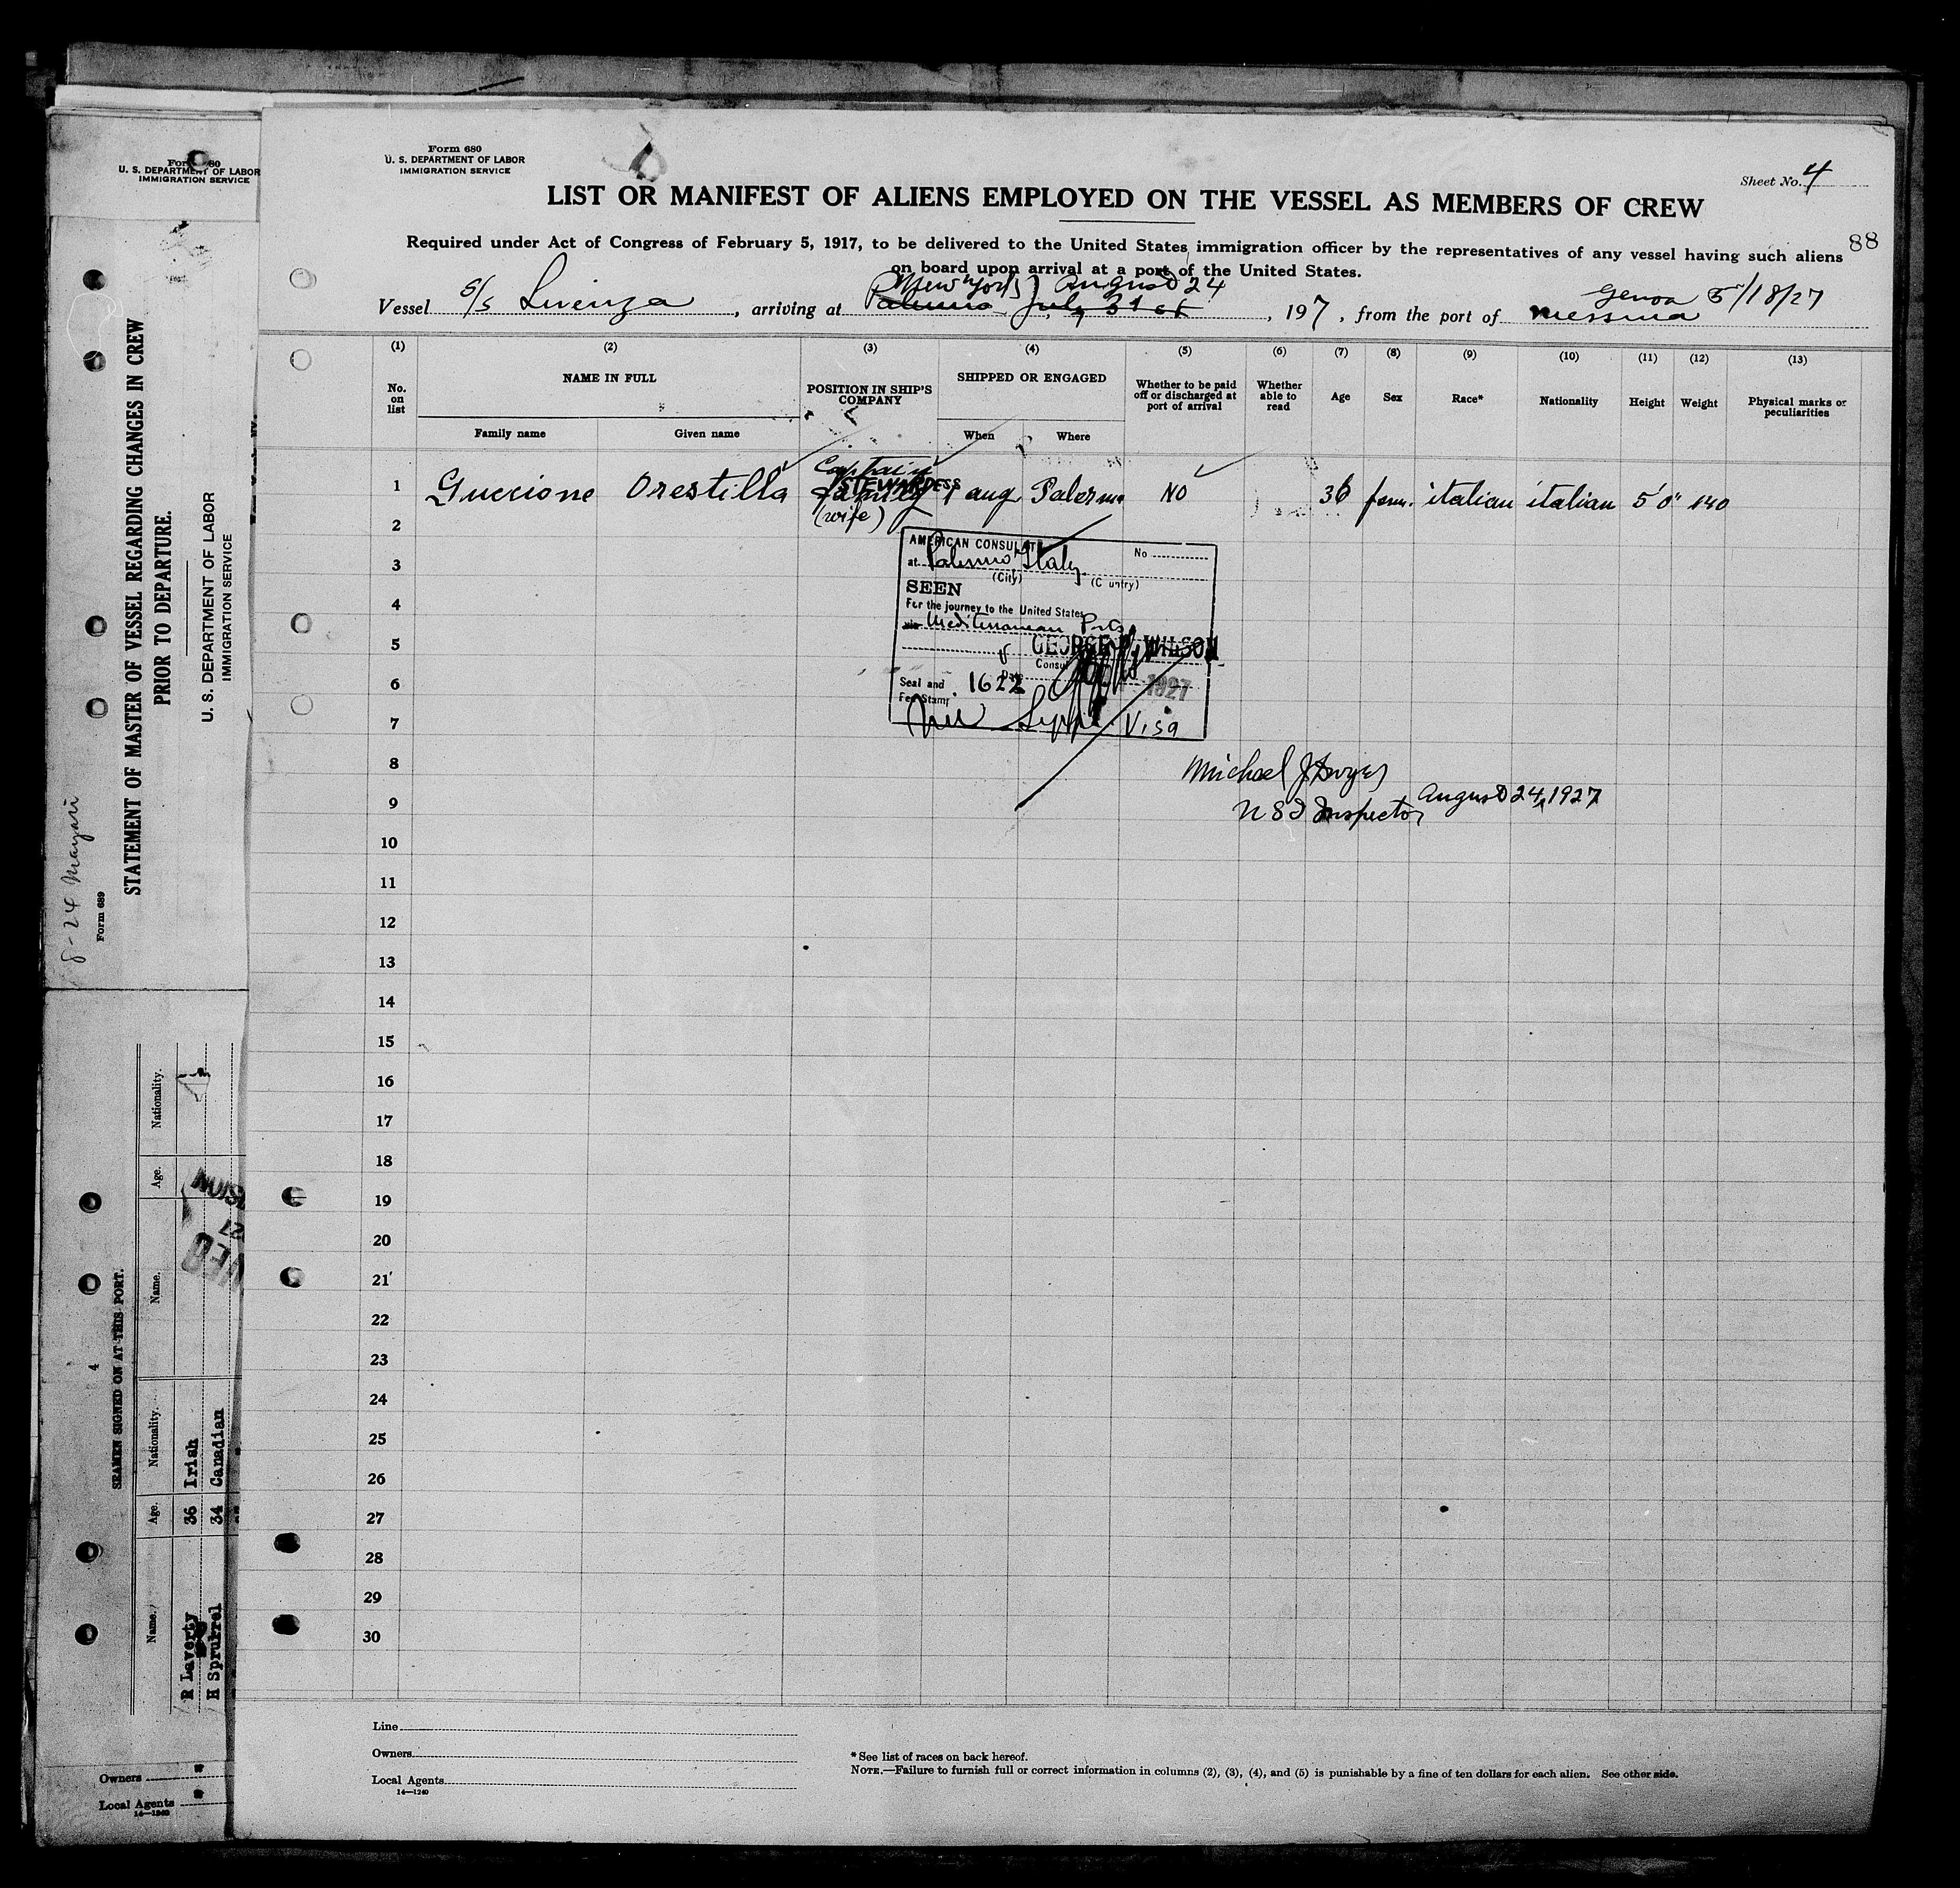 Form 680
U. S. DEPARTMENT OF LABOR
IMMIGRATION SERVICE
Sheet No. 4
LIST OR MANIFEST OF ALIENS EMPLOYED ON THE VESSEL AS MEMBERS OF CREW
Required under Act of Congress of February 5, 1917, to be delivered to the United States immigration officer by the representatives of any vessel having such aliens
88
on board upon arrival at a port of the United States.
New York August 24
Genoa 5/18/27
Vessel S/s Livenza, arriving at Palermo July 31st, 197, from the port of Messina
(1) (2) (3) (4) (5) (6) (7) (8) (9) (10) (11) (12) (13)
No. on list
NAME IN FULL
POSITION IN SHIP'S COMPANY
SHIPPED OR ENGAGED
Whether to be paid off or discharged at port of arrival
Whether able to read
Age
Sex
Race*
Nationality
Height
Weight
Physical marks or peculiarities
Family name Given name When Where
Captain
STEWARDESS
1 Guccione Orestilla family 1 aug Palermo NO 36 fem. italian italian 5' 0" 140
(wife)
2
AMERICAN CONSULATE
No
3
at Palermo, Italy
(City) (Country)
SEEN
4
For the journey to the United States
via Mediterranean Ports
5
GEORGE WILSON
Consul
6
Seal and
Fee Stamp
1622
1927
7
Visa
8
Michael J Dwyer
9
U S I Inspector August 24, 1927
10
11
12
13
14
15
16
17
18
19
20
21
22
23
24
25
26
27
28
29
30
Line
Owners
Local Agents
14—1240
* See list of races on back hereof.
NOTE.—Failure to furnish full or correct information in columns (2), (3), (4), and (5) is punishable by a fine of ten dollars for each alien. See other side.
U. S. DEPARTMENT OF LABOR
IMMIGRATION SERVICE
STATEMENT OF MASTER OF VESSEL REGARDING CHANGES IN CREW
PRIOR TO DEPARTURE.
U. S. DEPARTMENT OF LABOR
IMMIGRATION SERVICE
8-24 Mayari
Form 689
4
SEAMEN SIGNED ON AT THIS PORT.
Name. Age. Nationality. Name. Age. Nationality.
R Laverty 36 Irish
H Sprurrel 34 Canadian
Owners "
Local Agents "
14—1240